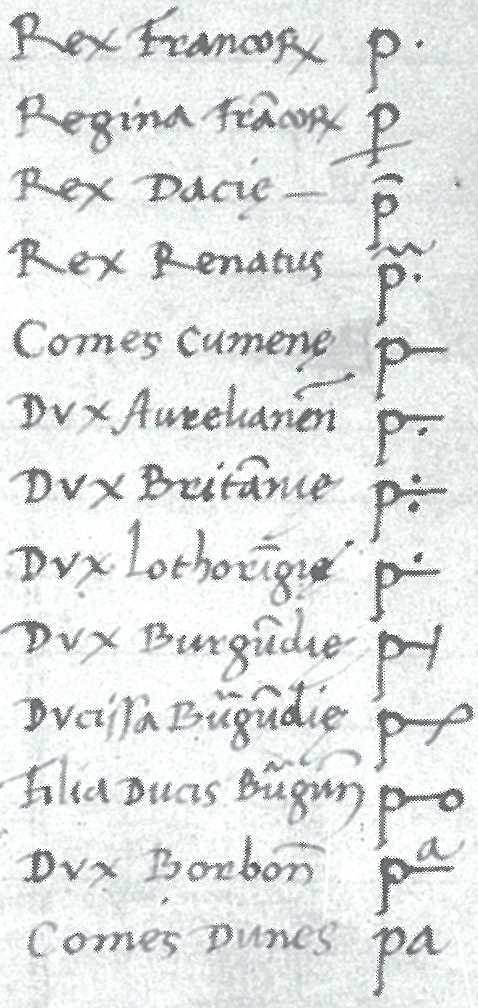 Rex Francoꝝ p.
Regina Frācoꝝ p̵
Rex Dacię — p̄
Rex Renatus p̃.
Comes Cumenę p–
Dvx Aurelianēn p–.
Dvx Britānie p÷
Dvx Lothorīgie p–̇
Dvx Burgūdie p
Dvcissa Būgūdie p
Filia Ducis Būgun̄ p–o
Dvx Borbon̄ p–a
Comes Dunes pa